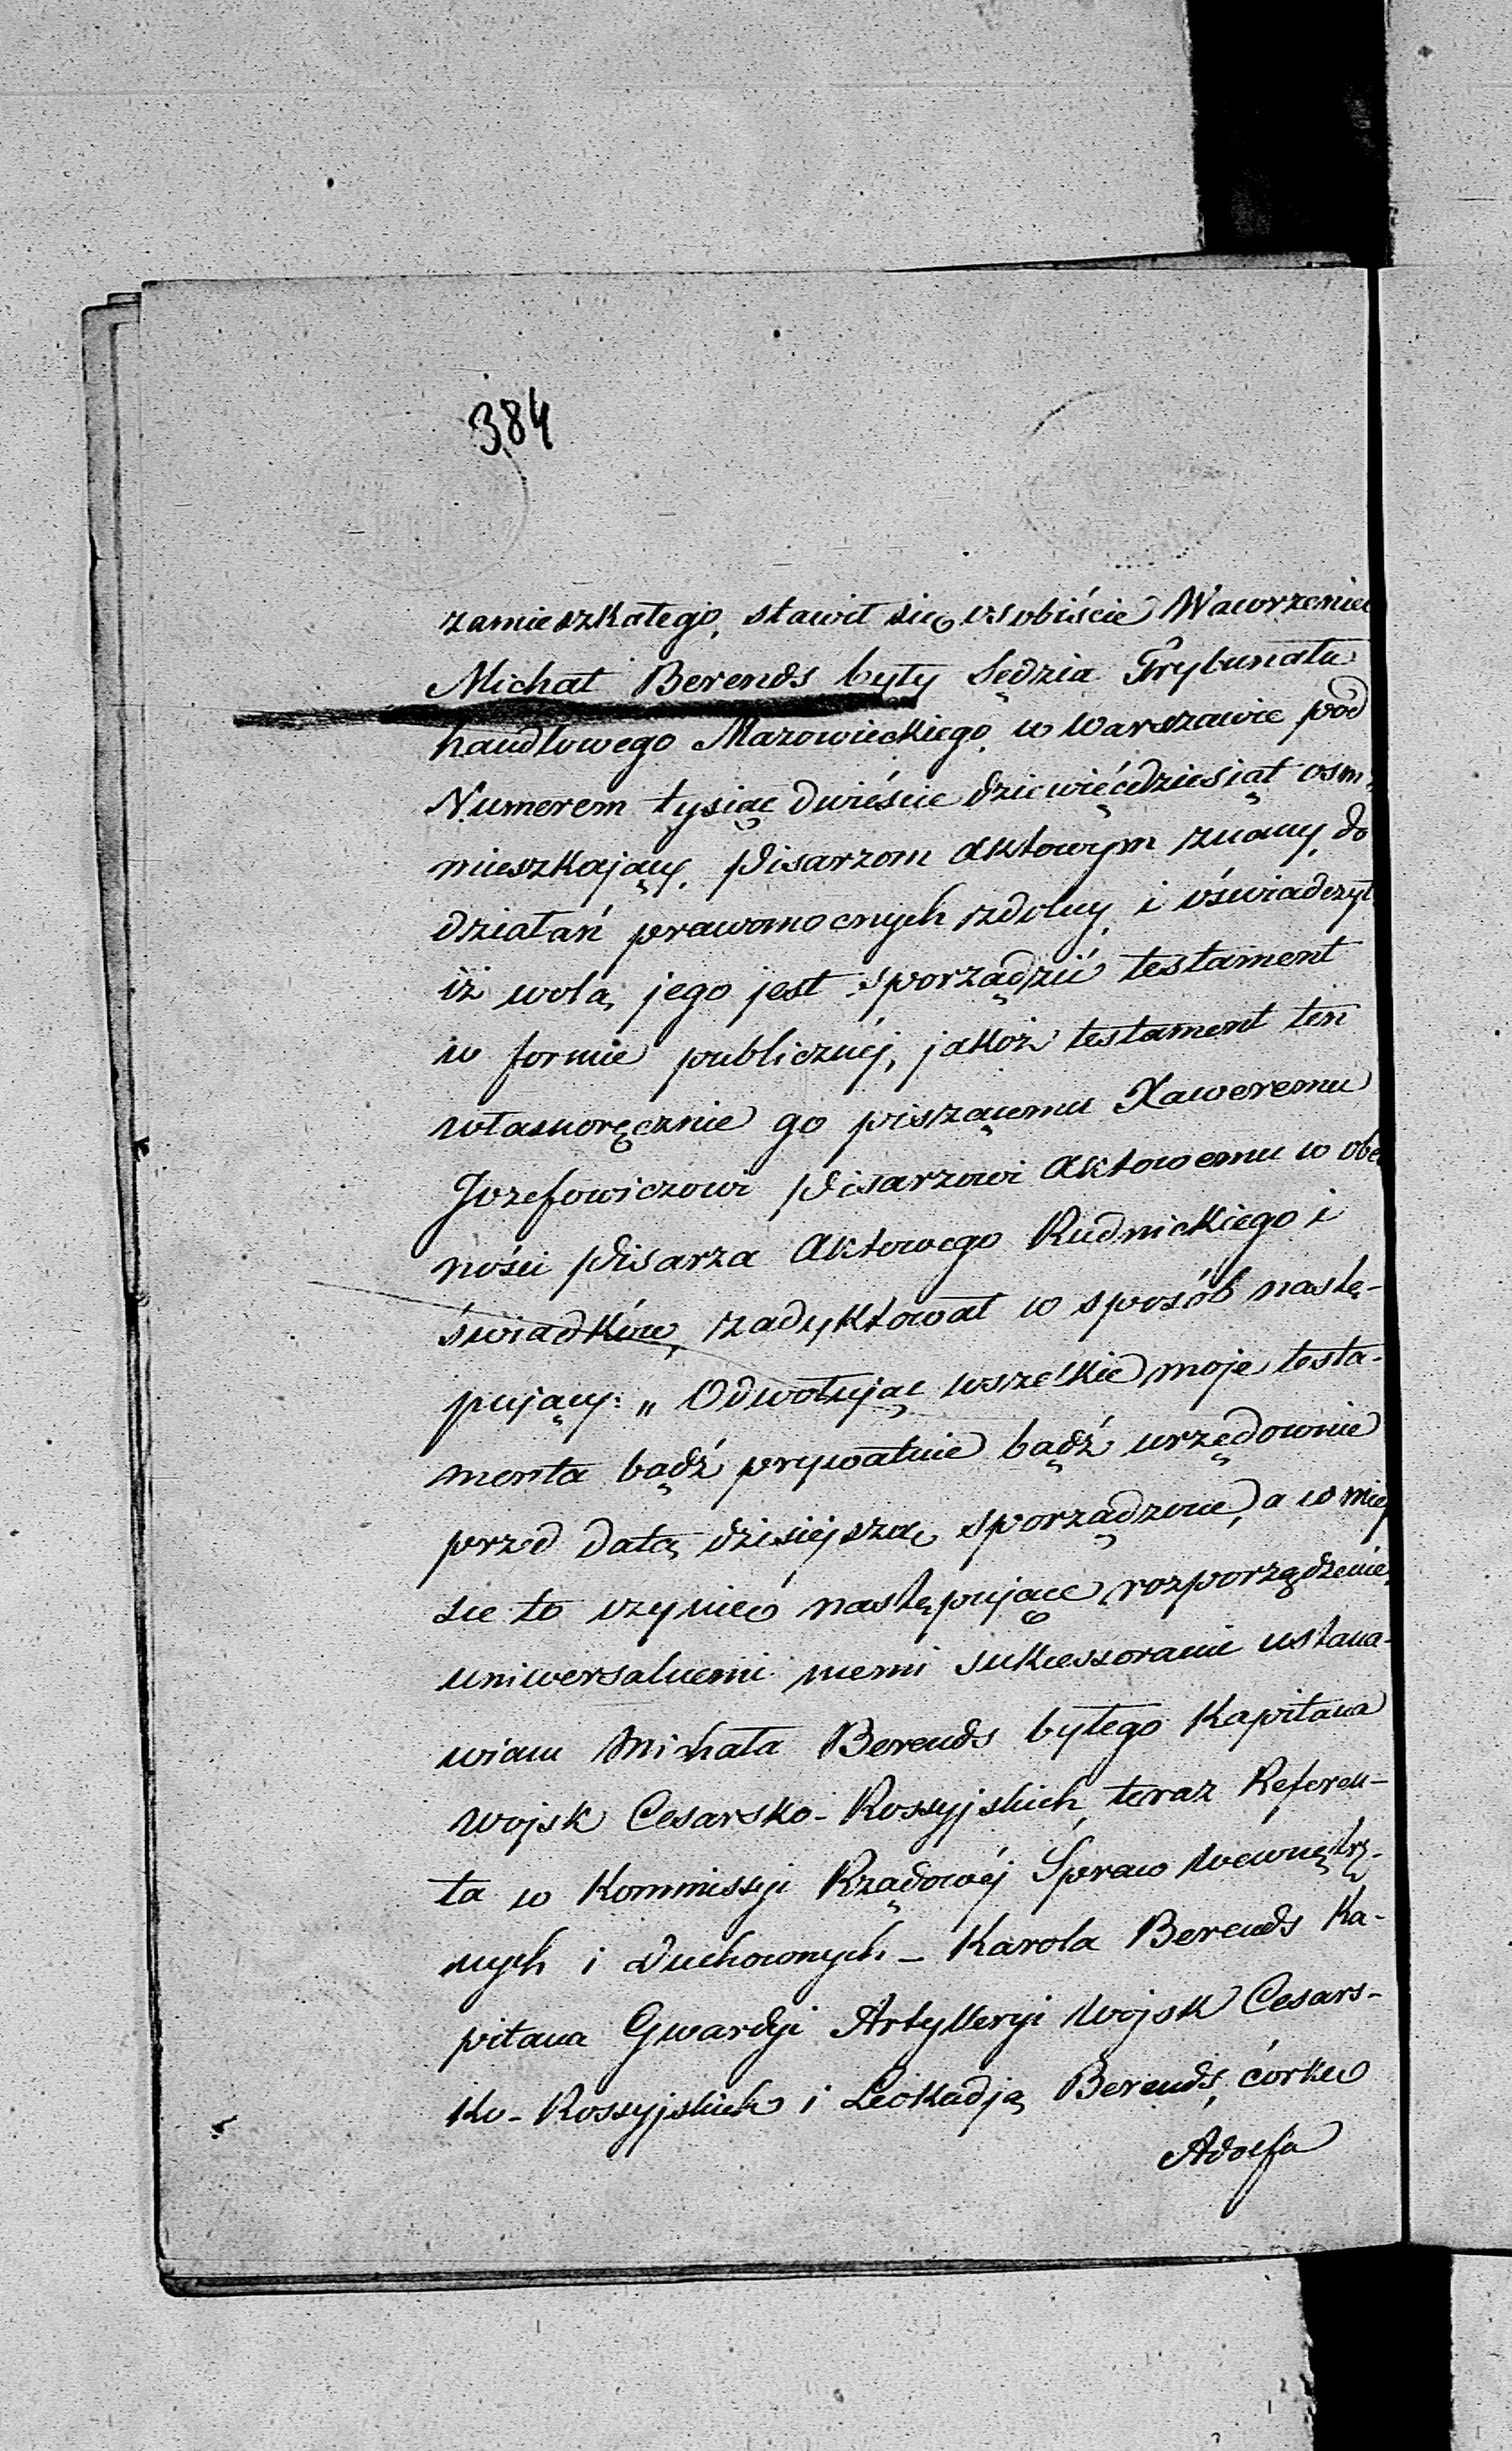 384
zamieszkałego, stawił się osobiście Wawrzeniec
Michał Berends były Sędzia Trybunału
handlowego Mazowieckiego, w Warszawie pod
Numerem tysiąc dwieście dziewięćdziesiąt osm,
mieszkający, Pisarzom Aktowym znany, do
działań prawomocnych zdolny, i oświadczył
iż wolą jego jest sporządzić testament
w formie publicznéj, jakoż testament ten
własnoręcznie go piszącemu Xaweremu
Jozefowiczowi Pisarzowi Aktowemu w obec
ności Pisarza Aktowego Rudnickiego i
świadków, zadyktował w sposób nastę-
pujący: „Odwołując wszelkie moje testa-
menta bądź prywatnie bądź urzędownie
przed datą dzisiejszą sporządzone, a w miej
sce to czynieć następujące rozporządzenie,
uniwersalnemi memi sukcessorami ustana-
wiam Michała Berends byłego Kapitana
Wojsk Cesarsko-Rossyjskich, teraz Referen-
ta w Kommissyi Rządowéj Spraw Wewnętrz-
nych i Duchownych - Karola Berends Ka-
pitana Gwardyi Artylleryi Wojsk Cesars-
ko-Rossyjskich i Leokadją Berends, córkę
Adolfa